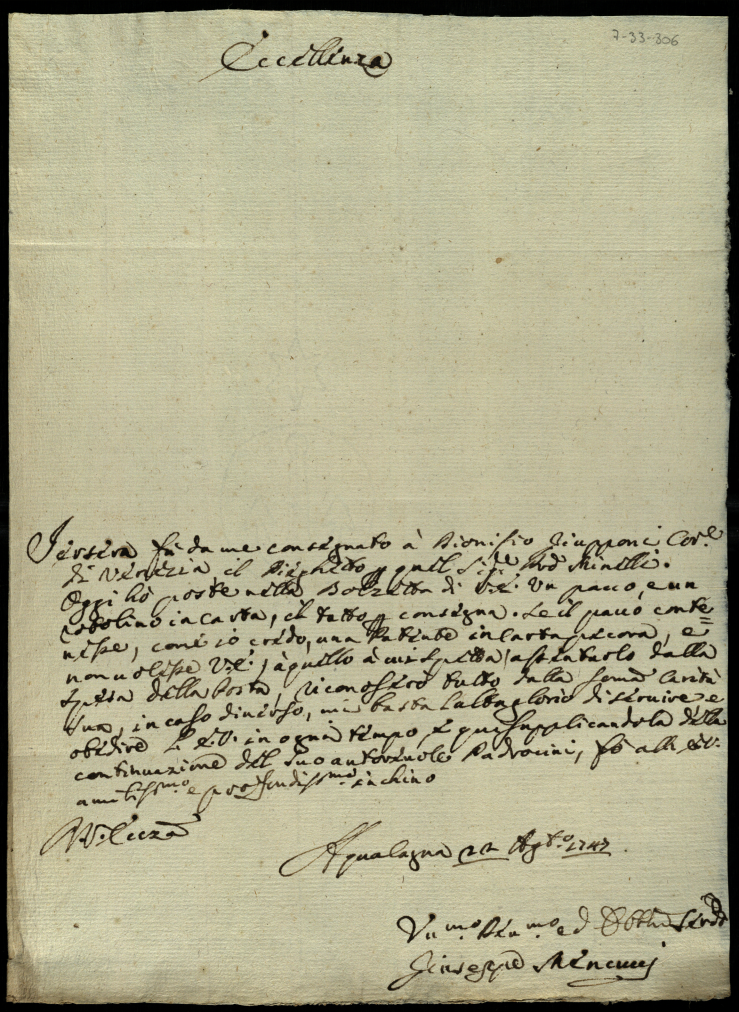 7-33-306
Eccellenza
Jersera fù da me consegnato à Dionisio Giupponi Cor.e
di Venezia il Pieghetto p quel Sig.re Minelli.
Oggi hò poste nella Bolzetta di V.E. Un pacco, e un
in Carta, il tutto p consegna. Se il pacco conte=
nesse, come io credo, una Patente in Cartapecora, e
non volesse V.E., à quello à mè spetta, dalla
spesa della Posta, tutto dalla Carità
Sua, in caso diverso, mi basta la gloria di servire e
obedire l'E.V. in ogni tempo, e quì supplicandola della
continuazione del Suo autorevole Padrocini, fò all'E.V.
umiliss.mo e profondiss.mo inchino
V. Ecc.za
Aqualagna 22 Agto. 1747
Vu.mo Deu.mo ed Obb.mo Serv.
Giuseppe Mencucci